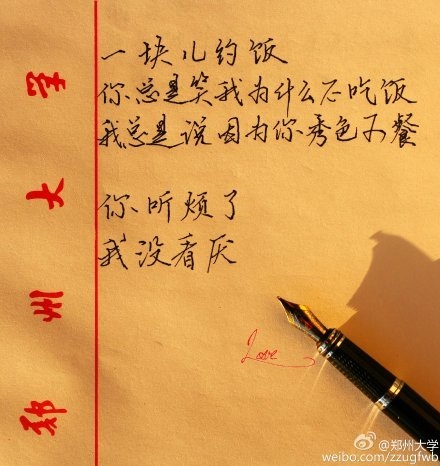 一块儿约饭
你总是笑我为什么不吃饭
我总是说因为你秀色可餐
你听烦了
我没看厌
郑州大学
Love
@郑州大学
weibo.com/zzugfwb